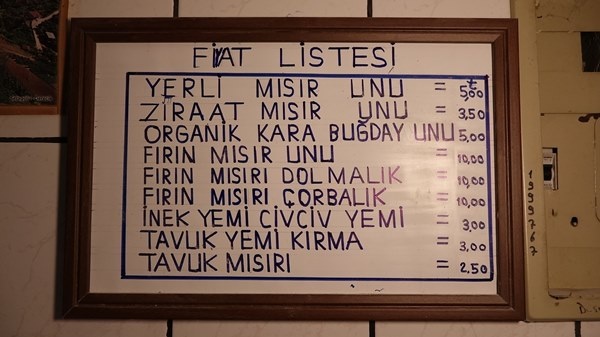 FİYAT LİSTESİ
YERLİ MISIR UNU = 5,00 ₺
ZİRAAT MISIR UNU = 3,50
ORGANİK KARA BUĞDAY UNU 5,00
FIRIN MISIR UNU = 10,00
FIRIN MISIRI DOLMALIK = 10,00
FIRIN MISIRI ÇORBALIK = 10,00
İNEK YEMİ CİVCİV YEMİ = 3,00
TAVUK YEMİ KIRMA = 3,00
TAVUK MISIRI = 2,50